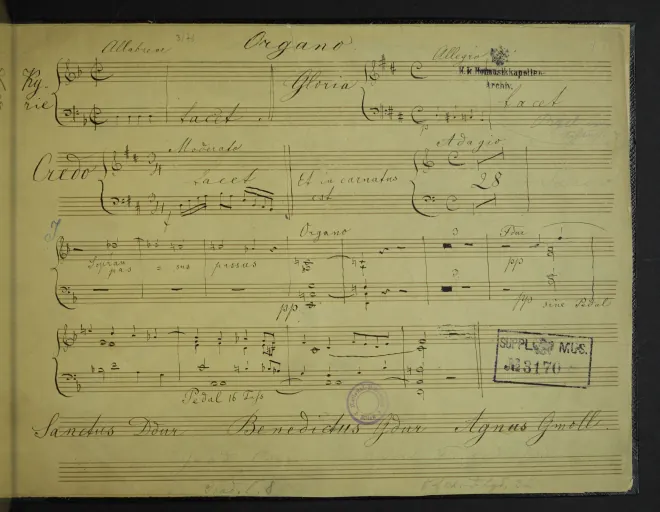 Organo
Allabreve
3170
Allegro
Kyrie
Gloria
K. k. Hofmusikkapellen-
Archiv.
tacet
tacet
Credo
Moderato
Adagio
tacet
Et in carnatus
est
28
Organo
Pdur
Sopran
pas = sus passus
pp
pp
sine Pedal
3
3
Pedal 16
SUPPL. MUS.
№ 3170
Sanctus Ddur Benedictus Gdur Agnus Gmoll.